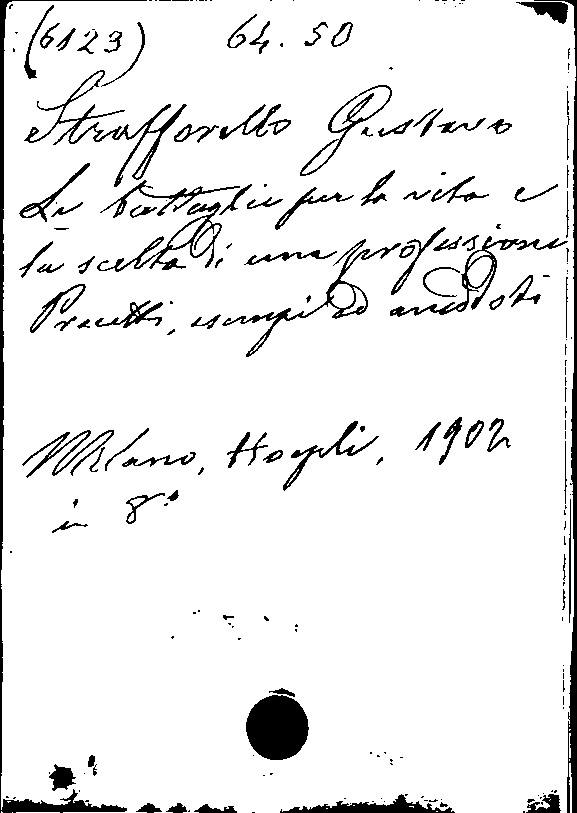 (6123) 64. 50
Strafforello Gustavo
La battaglia per la vita e
la scelta di una professione
Precetti, esempi ed aneddoti
Milano, Hoepli, 1902
in 8°